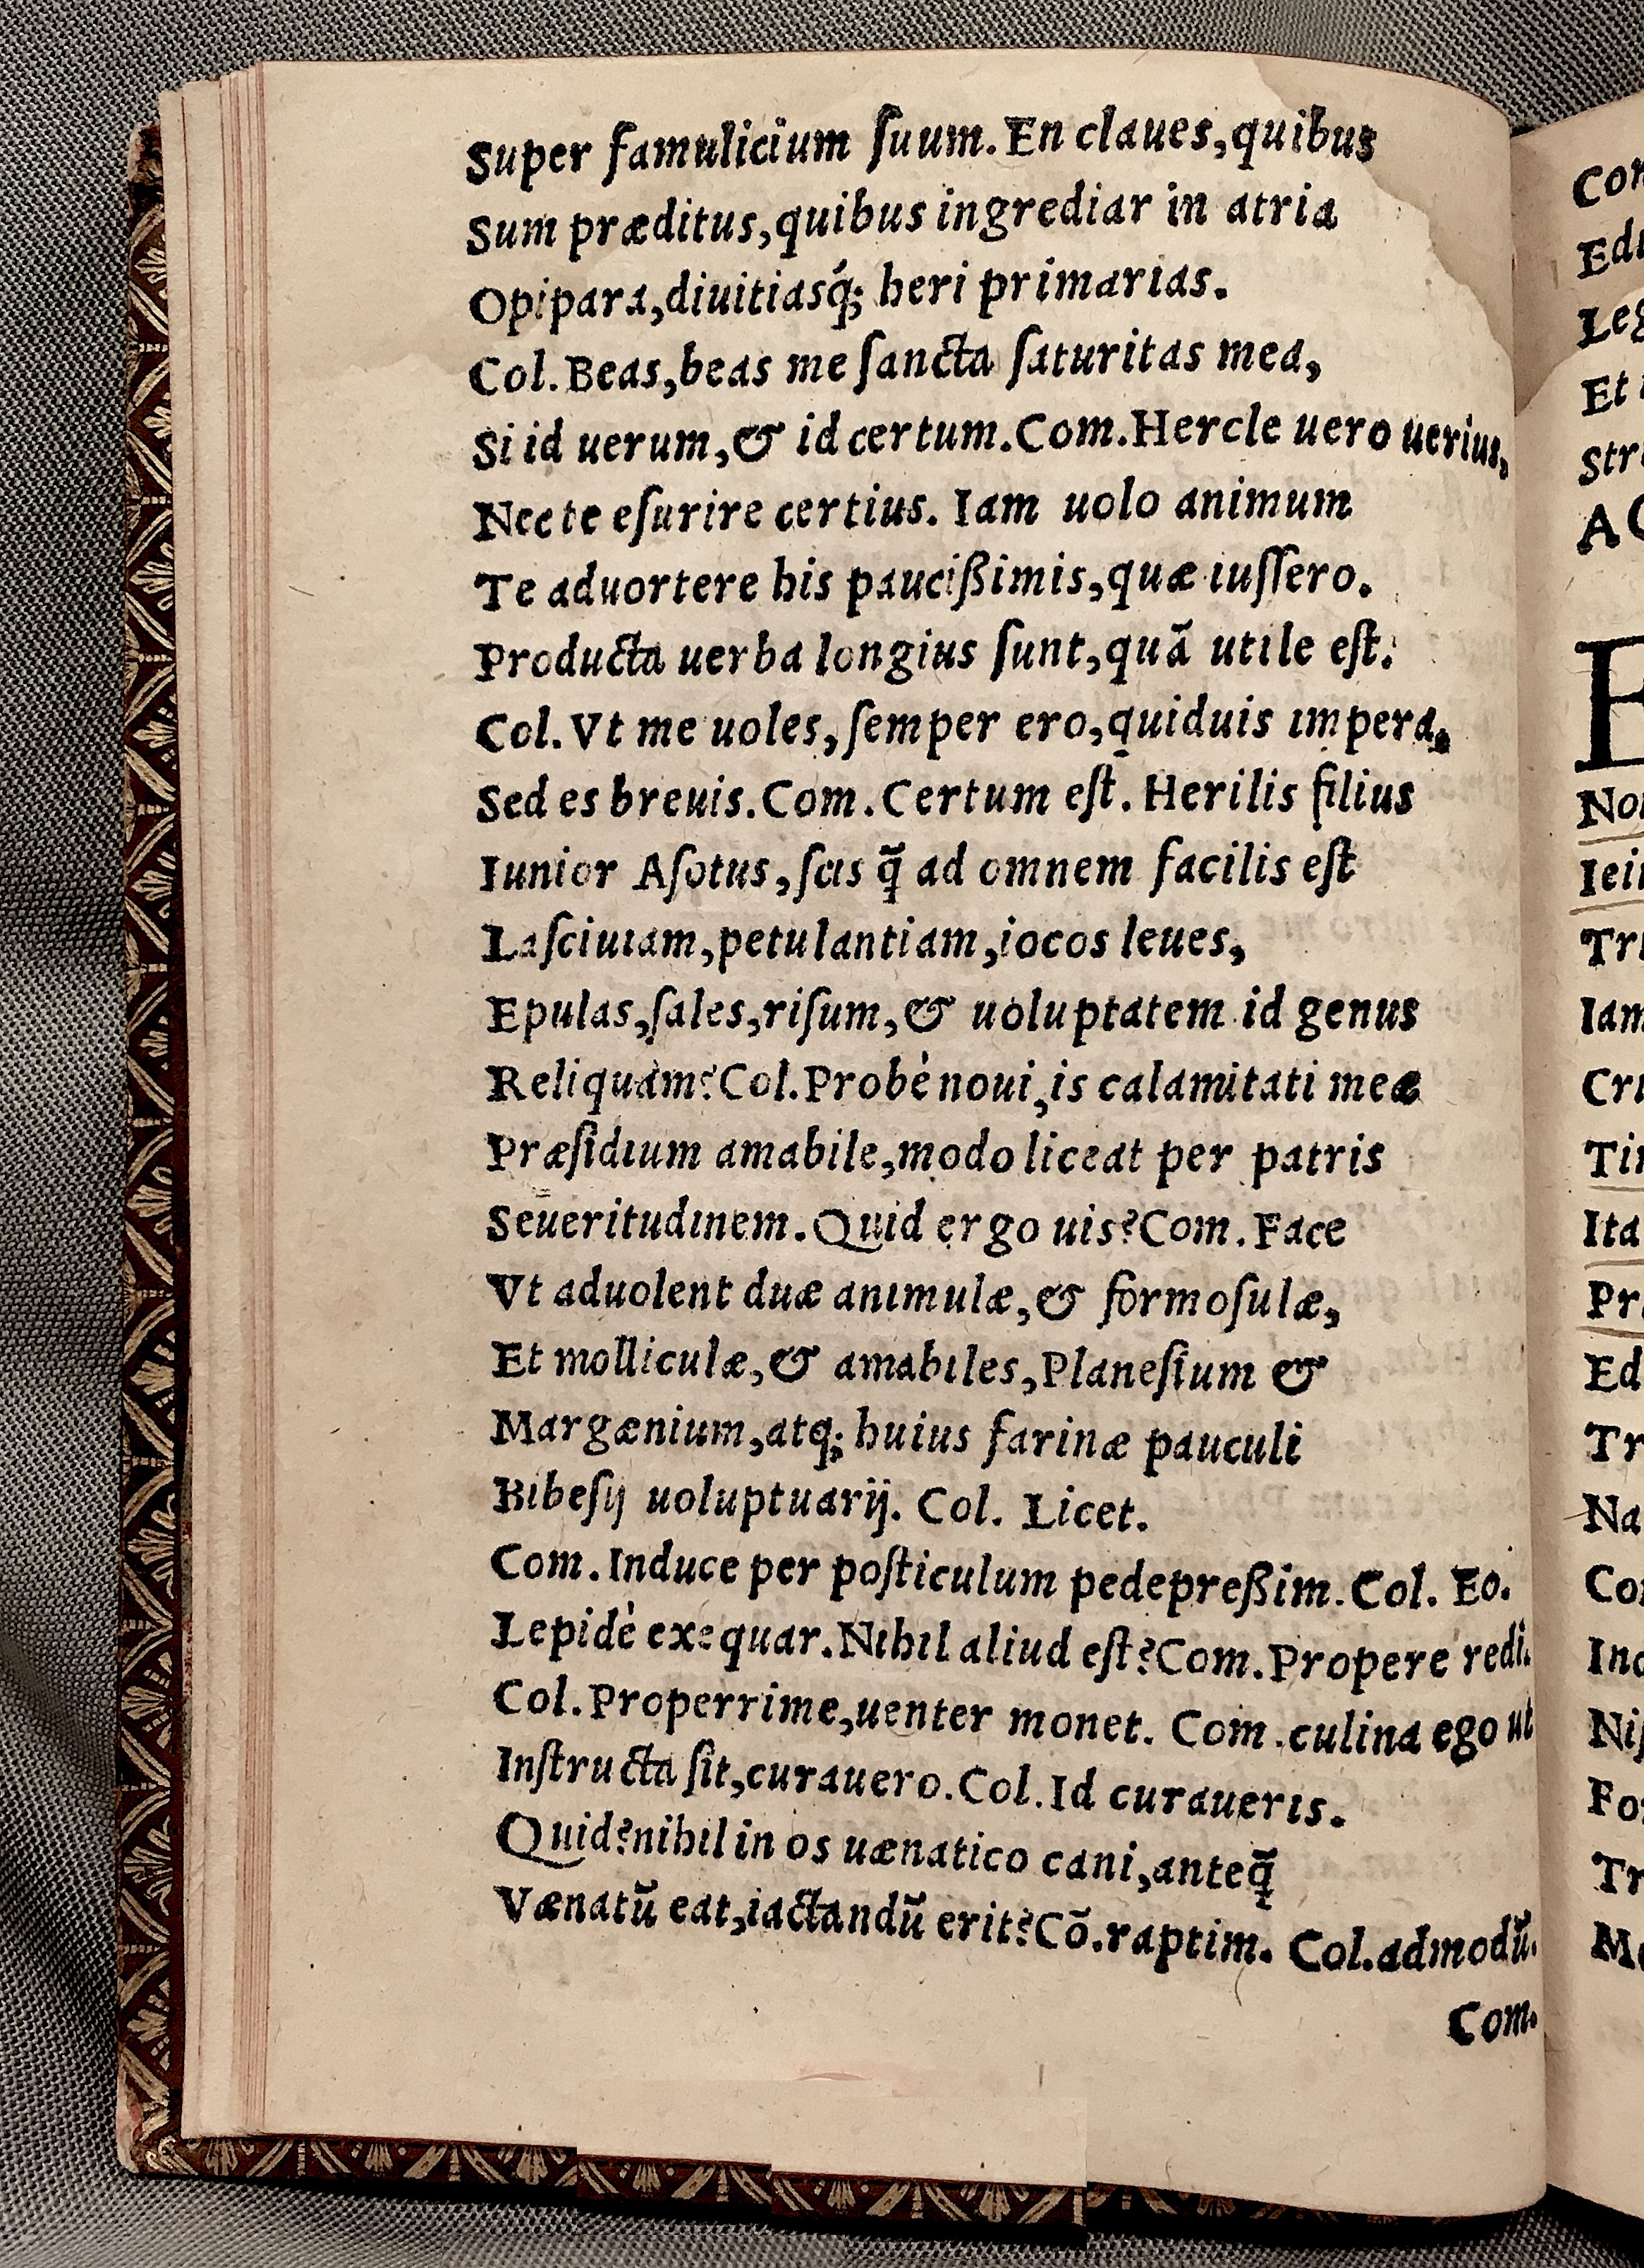 Super famulicium ſuum. En claues, quibus
Sum præditus, quibus ingrediar in atria
Opipara, diuitiasq́; heri primarias.
Col. Beas, beas me ſancta ſaturitas mea,
Si id uerum, & id certum. Com. Hercle uero uerius,
Nec te eſurire certius. Iam uolo animum
Te aduortere his paucißimis, quæ iuſſero.
Producta uerba longius ſunt, quã utile eſt.
Col. Vt me uoles, ſemper ero, quiduis impera,
Sed es breuis. Com. Certum eſt. Herilis filius
Iunior Aſotus, ſcis q̃ ad omnem facilis eſt
Laſciuiam, petulantiam, iocos leues,
Epulas, ſales, riſum, & uoluptatem id genus
Reliquam? Col. Probè noui, is calamitati meæ
Præſidium amabile, modo liceat per patris
Seueritudinem. Quid ergo uis? Com. Face
Vt aduolent duæ animulæ, & formoſulæ,
Et molliculæ, & amabiles, Planeſium &
Margænium, atq; huius farinæ pauculi
Bibeſij uoluptuarij. Col. Licet.
Com. Induce per poſticulum pedepreßim. Col. Eo.
Lepidè exequar. Nihil aliud eſt? Com. Propere redi.
Col. Properrime, uenter monet. Com. culina ego ut
Inſtructa ſit, curauero. Col. Id curaueris.
Quid? nihil in os uænatico cani, anteq̃
Vænatũ eat, iactandũ erit? Cõ. raptim. Col. admodũ.
Com.
Edu
Leg
Et
Str
Nor
Iam
Ita
Ed
Na